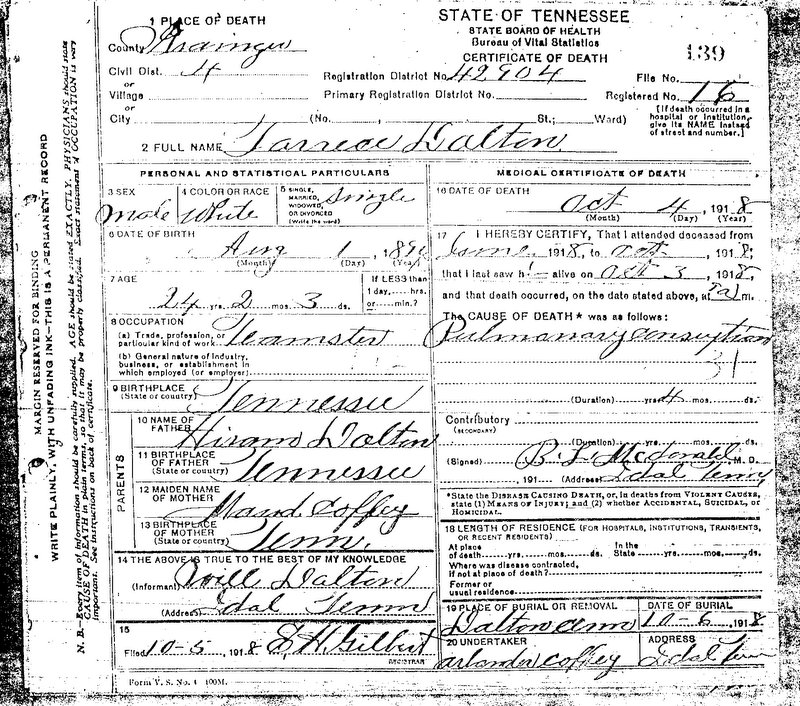 STATE OF TENNESSEE
STATE BOARD OF HEALTH
Bureau of Vital Statistics
CERTIFICATE OF DEATH
139
1 PLACE OF DEATH
County Grainger
Civil Dist. 4
Registration District No. 42904
File No.
or
Village
Primary Registration District No.
Registered No. 16
or
City (No. , St.; Ward)
[If death occurred in a
hospital or institution,
give its NAME instead
of street and number.]
2 FULL NAME Dalton
PERSONAL AND STATISTICAL PARTICULARS
3 SEX male
4 COLOR OR RACE White
5 SINGLE, MARRIED, WIDOWED, OR DIVORCED (Write the word) Single
6 DATE OF BIRTH
Aug 1
(Month) (Day) (Year)
7 AGE
24 yrs. 2 mos. 3 ds.
If LESS than
1 day,....hrs.
or....min.?
8 OCCUPATION
(a) Trade, profession, or
particular kind of work Teamster
(b) General nature of Industry,
business, or establishment in
which employed (or employer)
9 BIRTHPLACE
(State or country) Tennessee
PARENTS
10 NAME OF
FATHER Hiram Dalton
11 BIRTHPLACE
OF FATHER
(State or country) Tennessee
12 MAIDEN NAME
OF MOTHER Maud Coffey
13 BIRTHPLACE
OF MOTHER
(State or country) Tenn.
14 THE ABOVE IS TRUE TO THE BEST OF MY KNOWLEDGE
(Informant) Will Dalton
(Address) Idal Tenn
15
Filed 10-5, 1918 E. H. Gilbert
REGISTRAR
Form V. S. No. 4 100M.
MEDICAL CERTIFICATE OF DEATH
16 DATE OF DEATH
Oct 4, 1918
(Month) (Day) (Year)
17 I HEREBY CERTIFY, That I attended deceased from
1918, to Oct 1918,
that I last saw h alive on Oct 3, 1918,
and that death occurred, on the date stated above, at m.
The CAUSE OF DEATH* was as follows:
Pulmanary Consuption
31
(Duration) yrs. 4 mos. ds.
Contributory
(SECONDARY)
(Duration) yrs. mos. ds.
(Signed) McDonald, M. D.
191 (Address) Idal Tenn
*State the DISEASE CAUSING DEATH, or, in deaths from VIOLENT CAUSES,
state (1) MEANS OF INJURY; and (2) whether ACCIDENTAL, SUICIDAL, or
HOMICIDAL.
18 LENGTH OF RESIDENCE (FOR HOSPITALS, INSTITUTIONS, TRANSIENTS,
OR RECENT RESIDENTS)
At place
of death yrs. mos. ds.
In the
State yrs. mos. ds.
Where was disease contracted,
if not at place of death?
Former or
usual residence
19 PLACE OF BURIAL OR REMOVAL
Dalton
DATE OF BURIAL
10-6, 1918
20 UNDERTAKER
Coffey
ADDRESS
Idal
MARGIN RESERVED FOR BINDING
WRITE PLAINLY, WITH UNFADING INK—THIS IS A PERMANENT RECORD
N. B.—Every item of information should be carefully supplied. AGE should be stated EXACTLY. PHYSICIANS should state
CAUSE OF DEATH in plain terms, so that it may be properly classified. Exact statement of OCCUPATION is very
important. See instructions on back of certificate.